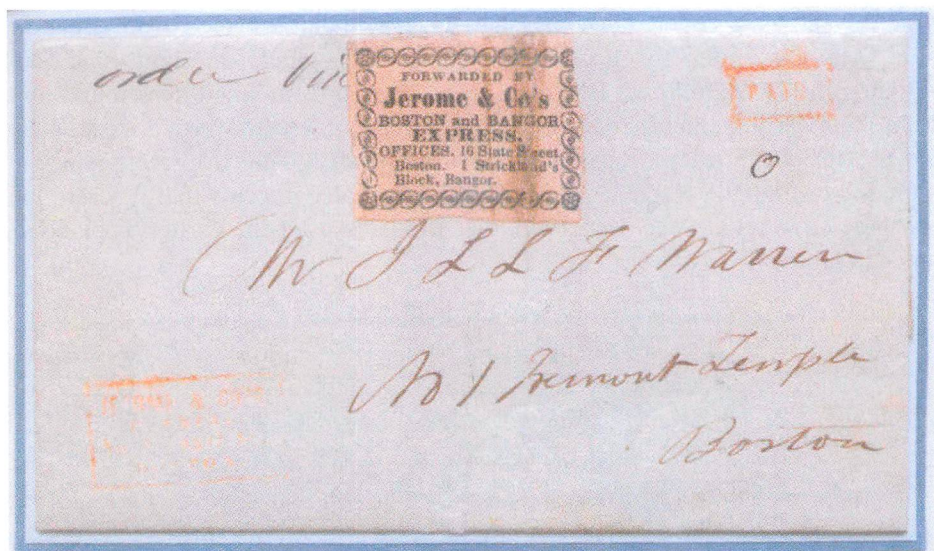 order
FORWARDED BY
Jerome & Co's
BOSTON and BANGOR
EXPRESS.
OFFICES. 16 State Street
Boston. 1 Strickland's
Block, Bangor.
PAID
Mr J L L F Warren
No 1 Tremont Temple
Boston
& CO'S